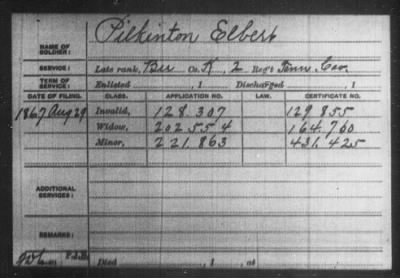 NAME OF SOLDIER: Pilkinton Elbert
SERVICE: Late rank, Co. K, 2 Reg't Tenn. Cav.
TERM OF SERVICE: Enlisted , 1 Discharged , 1
DATE OF FILING. CLASS. APPLICATION NO. LAW. CERTIFICATE NO.
1867 Aug 29 Invalid, 128.307 129.855
Widow, 202.554 164.760
Minor, 221.863 431.425
ADDITIONAL SERVICES:
REMARKS:
Died , 1 , at